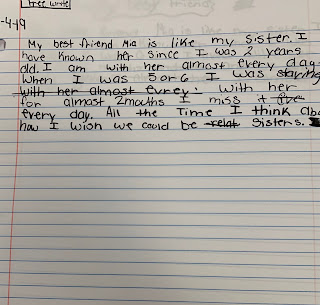 free write
-4-19
My best friend Mia is like my sister. I
have known her since I was 2 years
old. I am with her almost every day.
When I was 5 or 6 I was staying
with her almost evrey. with her
for almost 2mouths I miss it
every day. All the Time I think abo
how I wish we could be relat sisters.